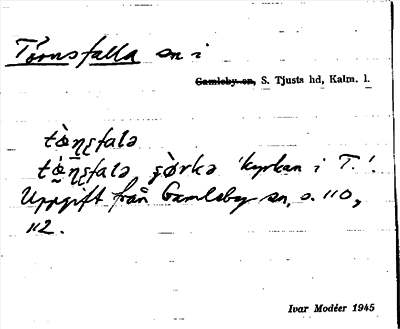 Törnsfalla sn i
Gamleby sn, S. Tjusts hd, Kalm. l.
tö̀ṇṣfalə
tö́ṇṣfalə ʂö̀rkə 'kyrkan i T.'.
Uppgift från Gamleby sn, s. 110,
112.
Ivar Modéer 1945